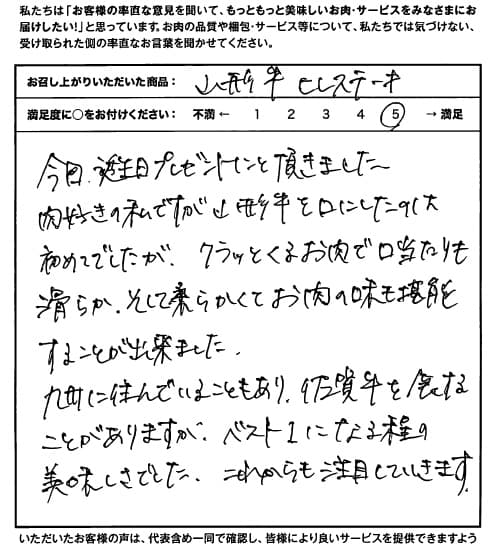 私たちは「お客様の率直な意見を聞いて、もっともっと美味しいお肉・サービスをみなさまにお
届けしたい!」と思っています。お肉の品質や梱包・サービス等について、私たちでは気づけない、
受け取られた側の率直なお言葉を聞かせてください。
お召し上がりいただいた商品: 山形牛 ヒレステーキ
満足度に○をお付けください: 不満 ← 1 2 3 4 5 → 満足
今回、誕生日プレゼントインと頂きました
肉好きの私ですが山形牛を口にしたのは
初めてでしたが、クラッとくるお肉で口当たりも
滑らか、そして柔らかくてお肉の味も堪能を
することが出来ました。
九州に住んでいることもあり、佐賀牛を食する
ことがありますが、ベスト1になる程の
美味しさでした。これからも注目していきます。
いただいたお客様の声は、代表含め一同で確認し、皆様により良いサービスを提供できますよう